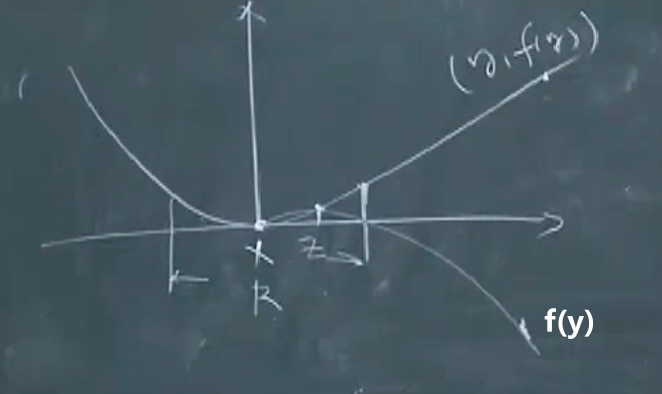 (y, f(y))
x
z
R
f(y)